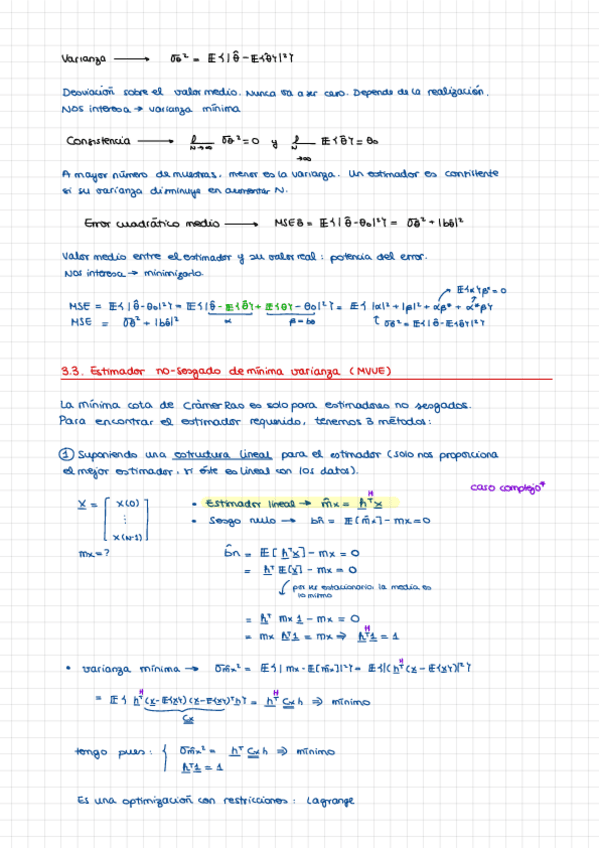 Varianza → σθ̂² = E{|θ̂ - E{θ̂}|²}
Desviación sobre el valor medio. Nunca va a ser cero. Depende de la realización.
Nos interesa → varianza mínima
Consistencia → l N→∞ σθ̂² = 0 y l N→∞ E{θ̂} = θ₀
A mayor número de muestras, menor es la varianza. Un estimador es consistente
si su varianza disminuye en aumentar N.
Error cuadrático medio → MSEθ̂ = E{|θ̂ - θ₀|²} = σθ̂² + |bθ̂|²
Valor medio entre el estimador y su valor real: potencia del error.
Nos interesa → minimizarlo
E{α}β* = 0
MSE = E{|θ̂ - θ₀|²} = E{|θ̂ - E{θ̂} + E{θ̂} - θ₀|²} = E{|α|² + |β|² + αβ* + α*β}
MSE = σθ̂² + |bθ̂|² α β = bθ̂ σθ̂² = E{|θ̂ - E{θ̂}|²}
3.3. Estimador no-sesgado de mínima varianza (MVUE)
La mínima cota de Cràmer Rao es solo para estimadores no sesgados.
Para encontrar el estimador requerido, tenemos 3 métodos:
① Suponiendo una estructura lineal para el estimador (solo nos proporciona
el mejor estimador, si éste es lineal con los datos).
caso complejo*
x = [x(0) ⋮ x(N-1)] • Estimador lineal → m̂x = hᵀx H
• Sesgo nulo → bm̂ = E[m̂x] - mx = 0
mx = ? b̂m = E[hᵀx] - mx = 0
= hᵀE[x] - mx = 0
por ser estacionario, la media es
lo mismo
= hᵀ mx 1 - mx = 0
= mx hᵀ1 = mx ⇒ hᵀ1 = 1 H
• varianza mínima → σm̂x² = E{|mx - E[m̂x]|²} = E{|(hᵀ(x - E{x})|²} H
= E{hᵀ(x - E{x})(x - E{x})ᵀh} = hᵀ Cx h ⇒ mínimo H H
Cx
tengo pues: { σm̂x² = hᵀ Cx h ⇒ mínimo
hᵀ1 = 1
Es una optimización con restricciones: Lagrange